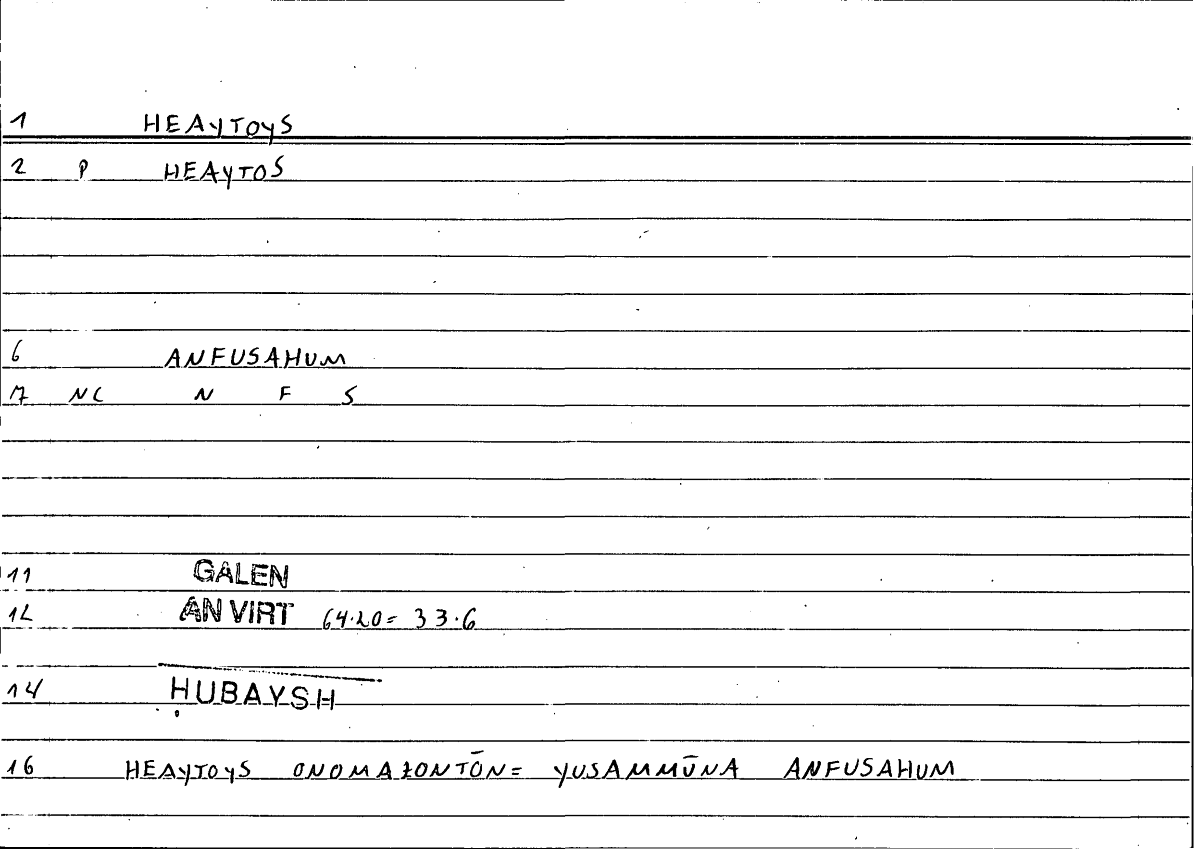 1 HEAYTOYS
2 P HEAYTOS
6 ANFUSAHUM
17 NC N F S
11 GALEN
12 AN VIRT 64.20 = 33.6
14 ḤUBAYSH
16 HEAYTOYS ONOMAZONTŌN = YUSAMMŪNA ANFUSAHUM